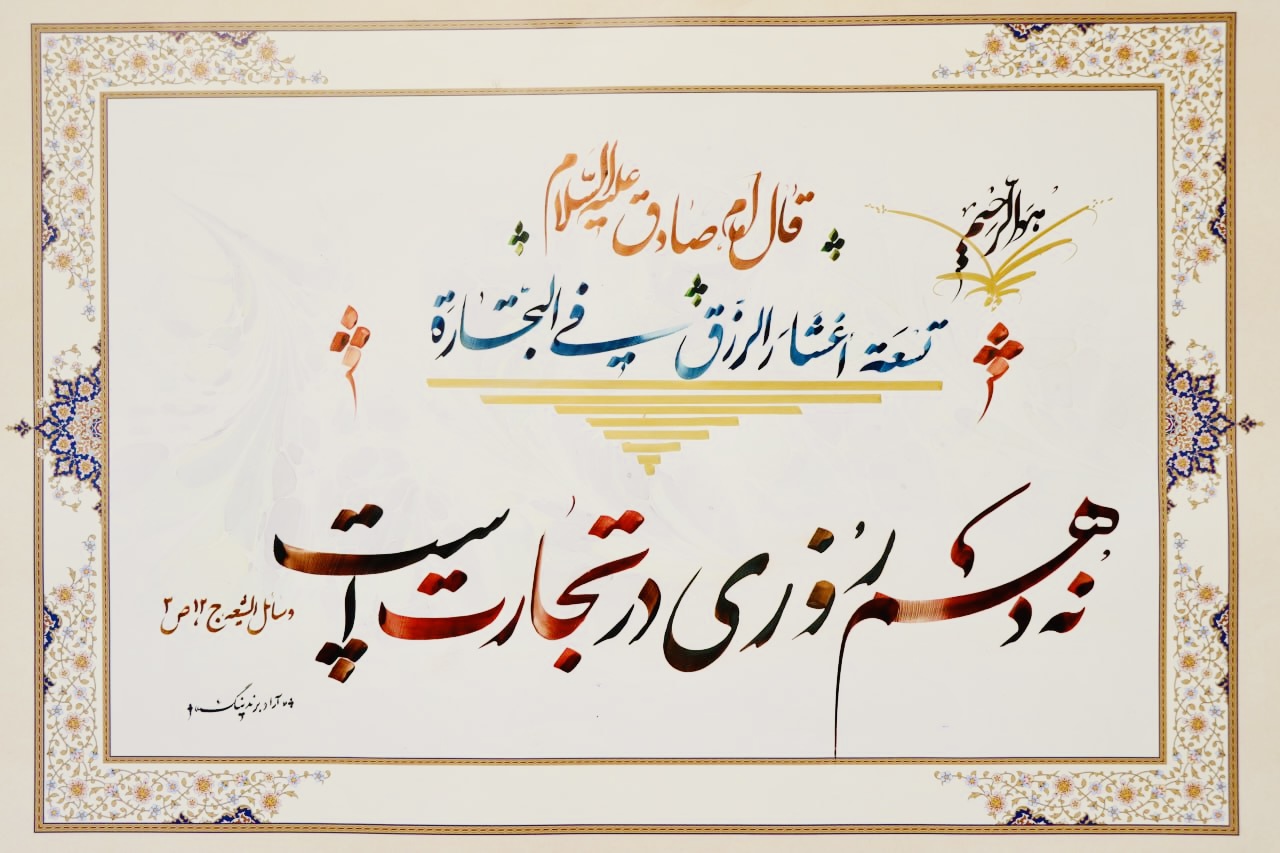 هوالرحیم
قال امام صادق علیه السلام
تسعة اعشار الرزق في التجارة
نه دهم روزی در تجارت است
وسائل الشیعه ج ۱۲ ص ۳
آراد برندینگ